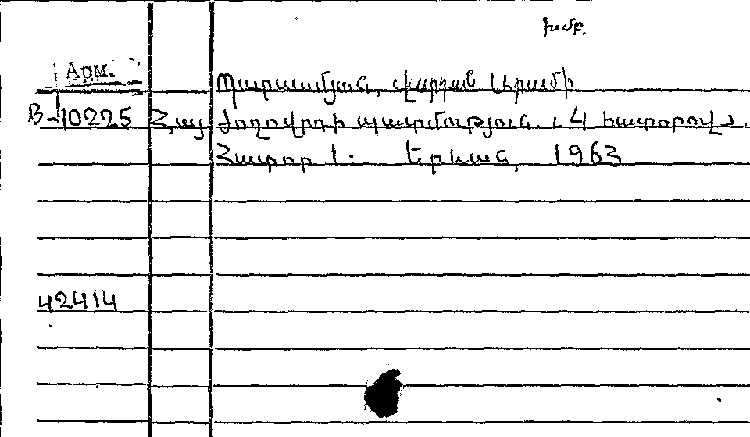 խմբ.
Арм.
Պարսամյան, Վարդան Արամի
В-10225 Հայ ժողովրդի պատմություն. 4 հատորով.
Հատոր 1. Երևան, 1963
42414